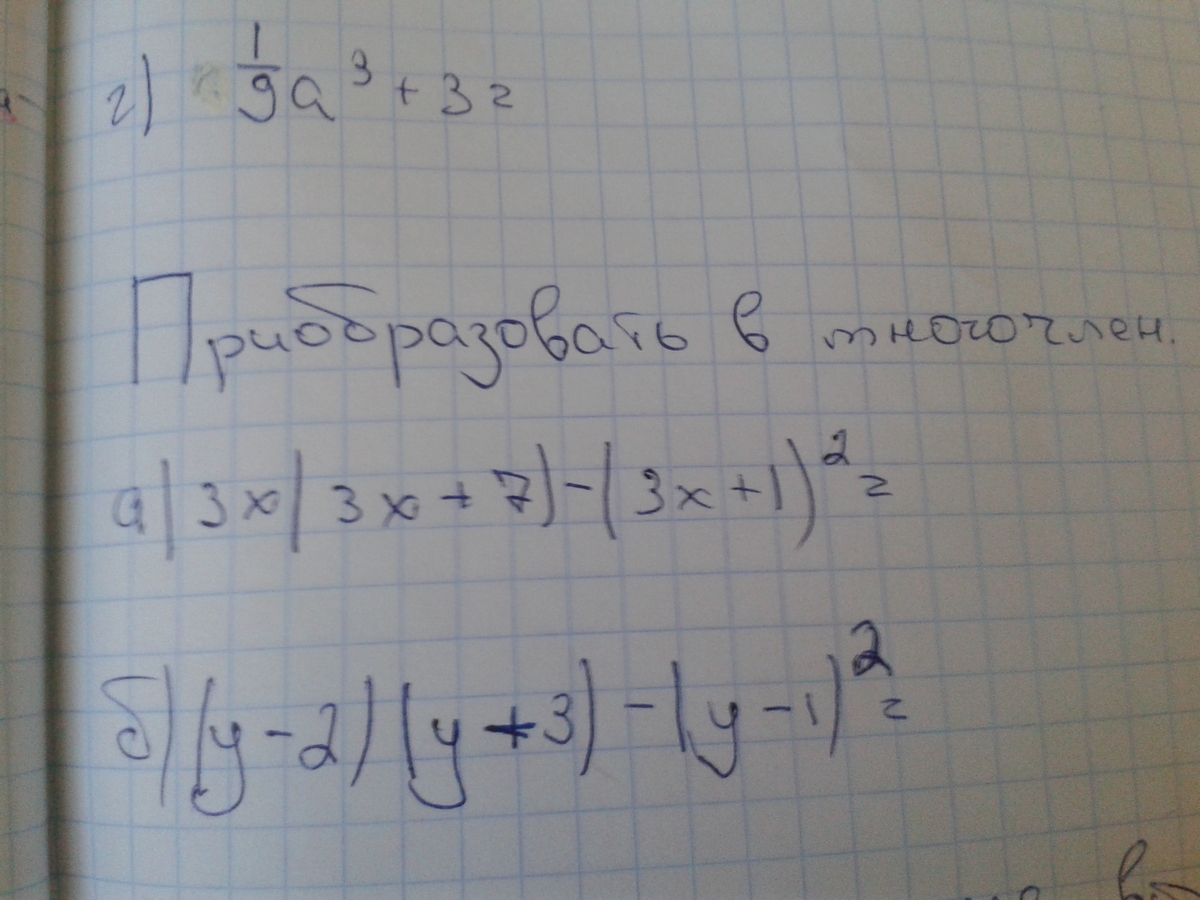 г) 1/9 a³ + 3 =
Приобразовать в многочлен.
а) 3x(3x + 7) - (3x + 1)² =
б) (y - 2) (y + 3) - (y - 1)² =